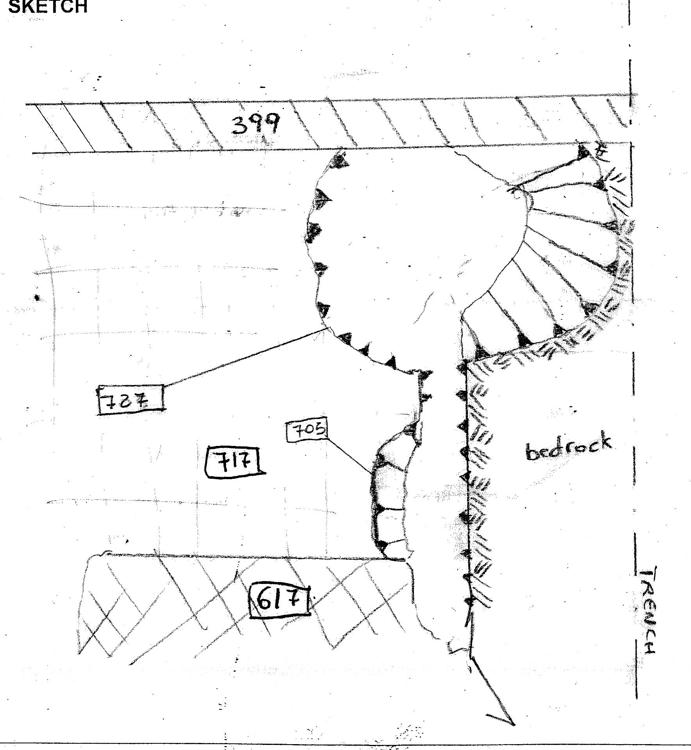 SKETCH
399
727
705
717
bedrock
617
TRENCH